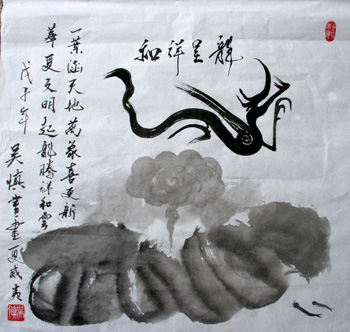 龍呈祥和
一葉涵天地萬象喜更新
華夏文明起龍騰祥和雲
戊子年
吳慎書畫夏威夷